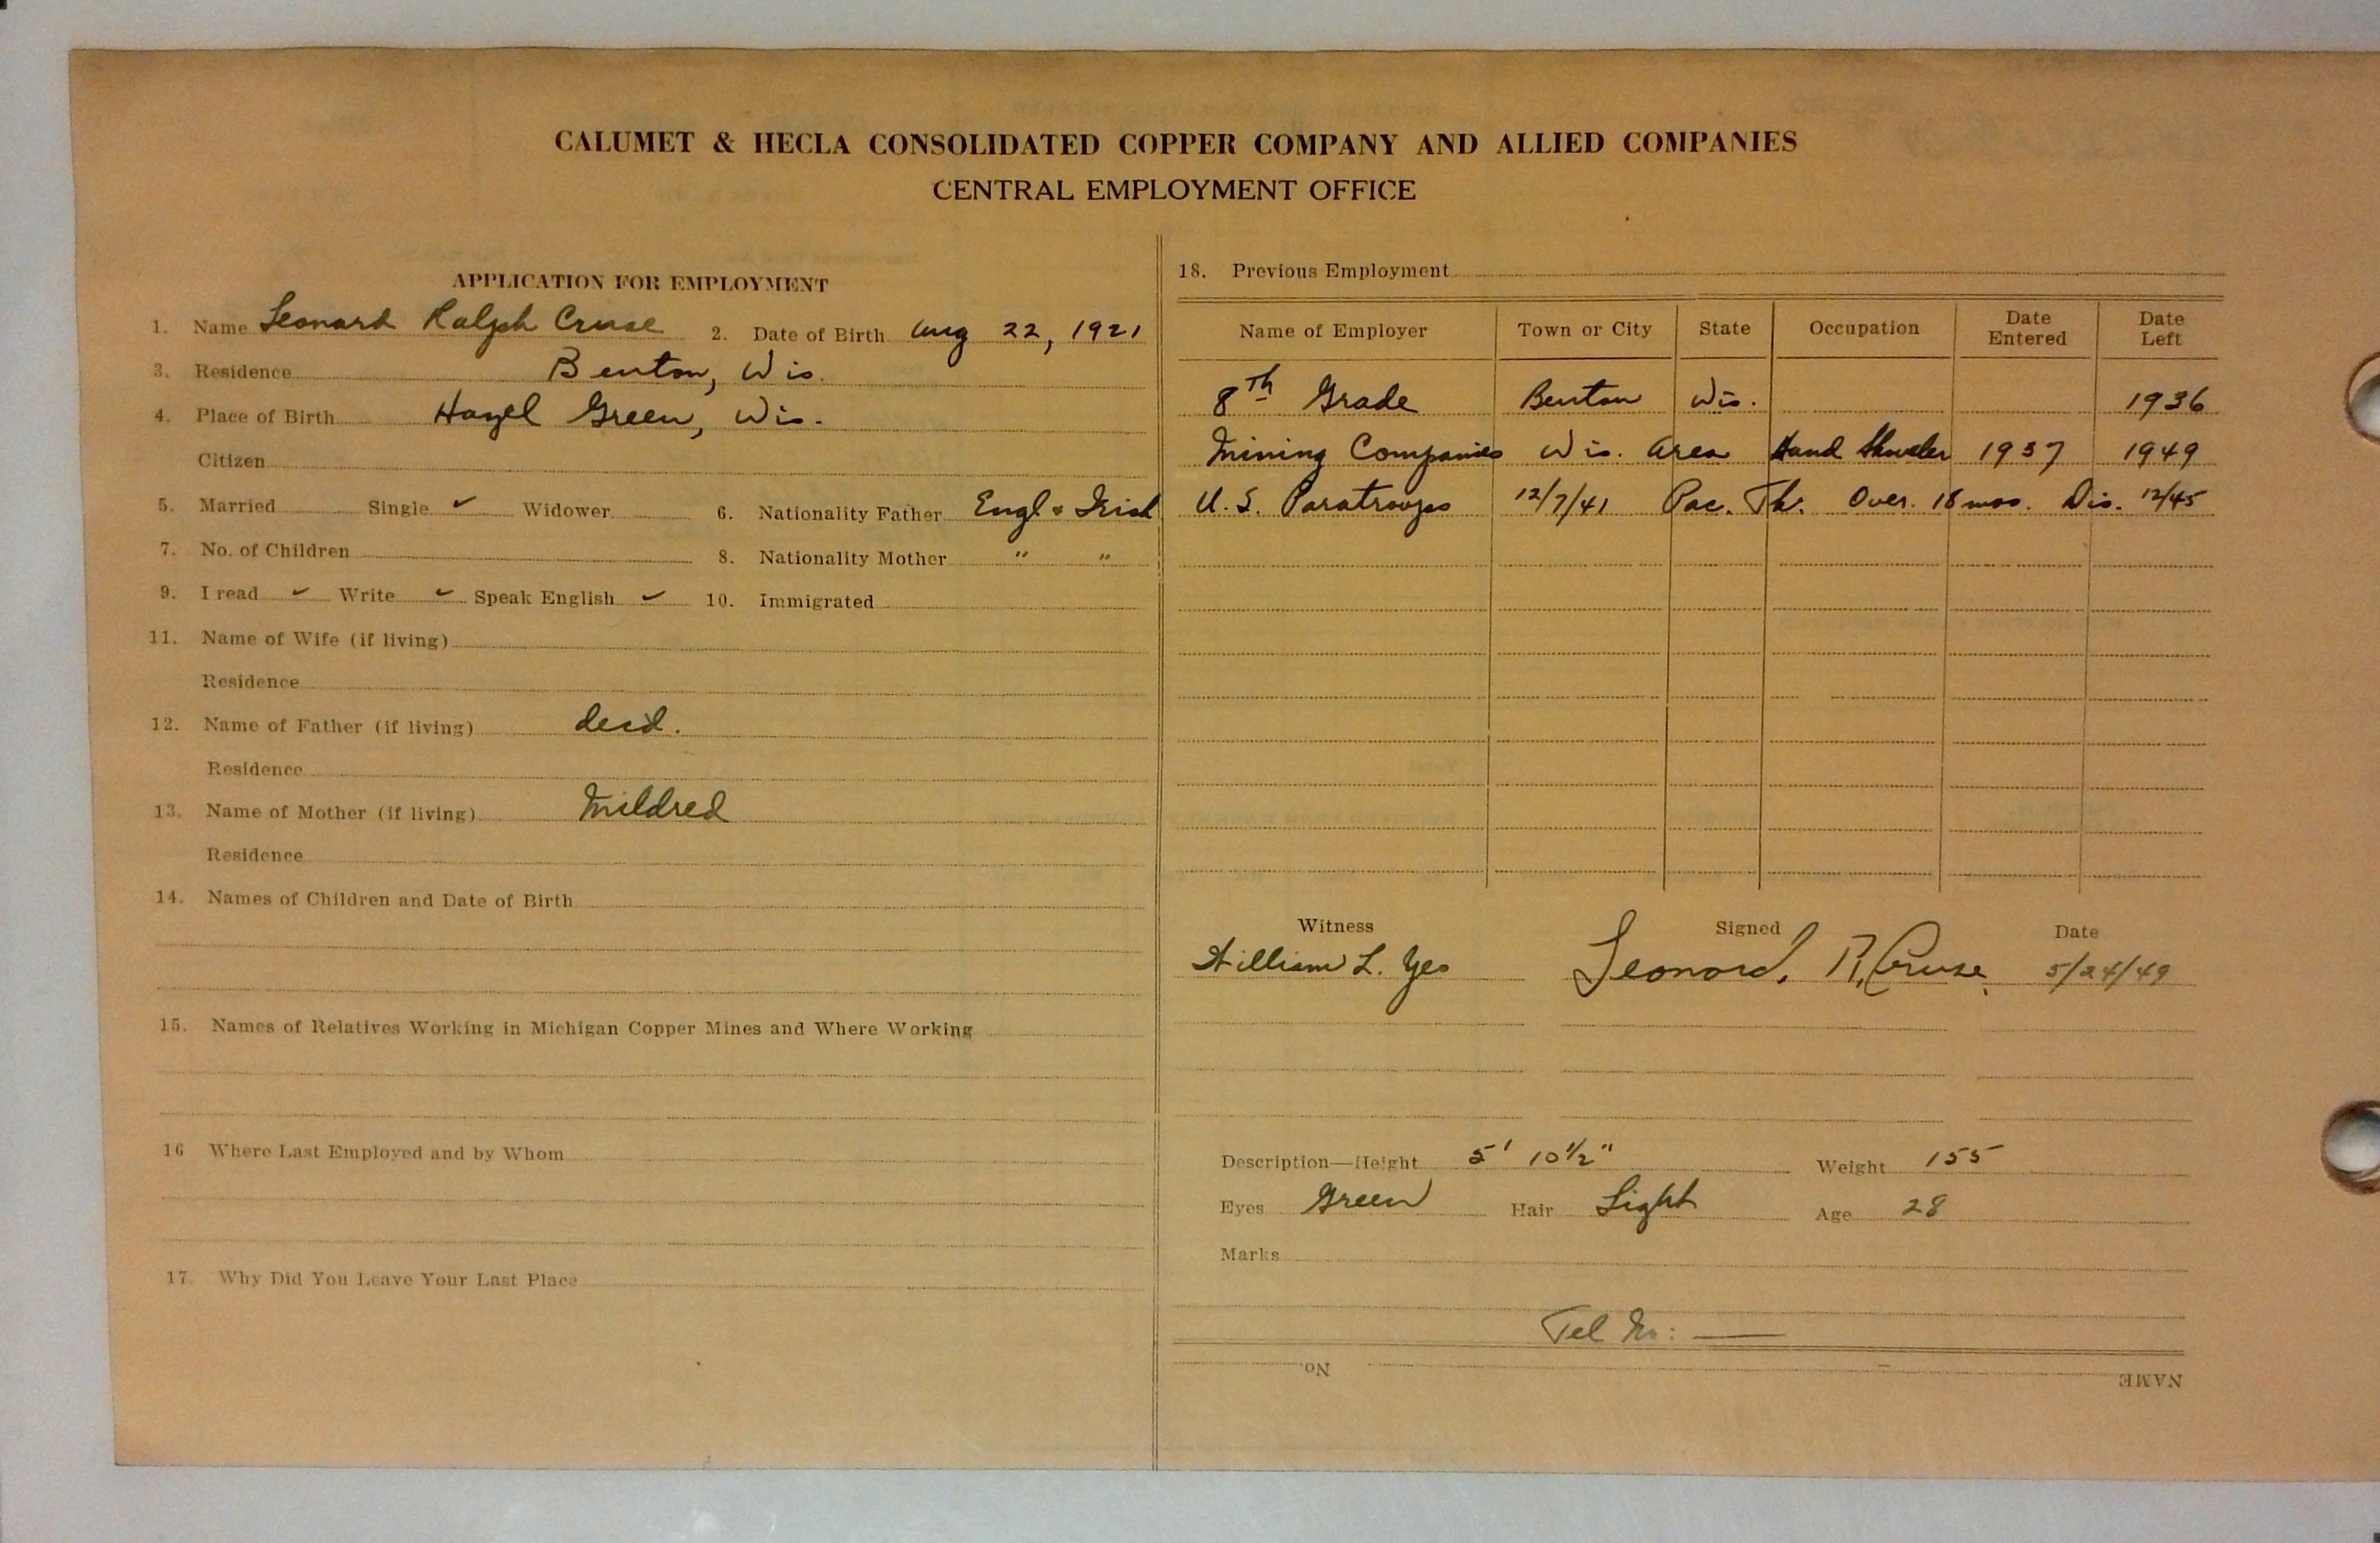 CALUMET & HECLA CONSOLIDATED COPPER COMPANY AND ALLIED COMPANIES
CENTRAL EMPLOYMENT OFFICE
APPLICATION FOR EMPLOYMENT
1. Name Leonard Ralph Cruse 2. Date of Birth Aug 22, 1921
3. Residence Benton, Wis.
4. Place of Birth Hazel Green, Wis.
Citizen
5. Married Single ✓ Widower 6. Nationality Father Engl & Irish
7. No. of Children 8. Nationality Mother " "
9. I read ✓ Write ✓ Speak English ✓ 10. Immigrated
11. Name of Wife (if living)
Residence
12. Name of Father (if living) decd.
Residence
13. Name of Mother (if living) Mildred
Residence
14. Names of Children and Date of Birth
15. Names of Relatives Working in Michigan Copper Mines and Where Working
16 Where Last Employed and by Whom
17. Why Did You Leave Your Last Place
18. Previous Employment
Name of Employer Town or City State Occupation Date Entered Date Left
8th Grade Benton Wis. 1936
Mining Companies Wis. Area Hand Shoveler 1937 1949
U.S. Paratroops 12/7/41 Pac. Th. Over. 18 mos. Dis. 12/45
Witness Signed Date
William L. Leonard R. Cruse 5/24/49
Description—Height 5' 10½" Weight 155
Eyes Green Hair Light Age 28
Marks
Tel No: —
No.
NAME